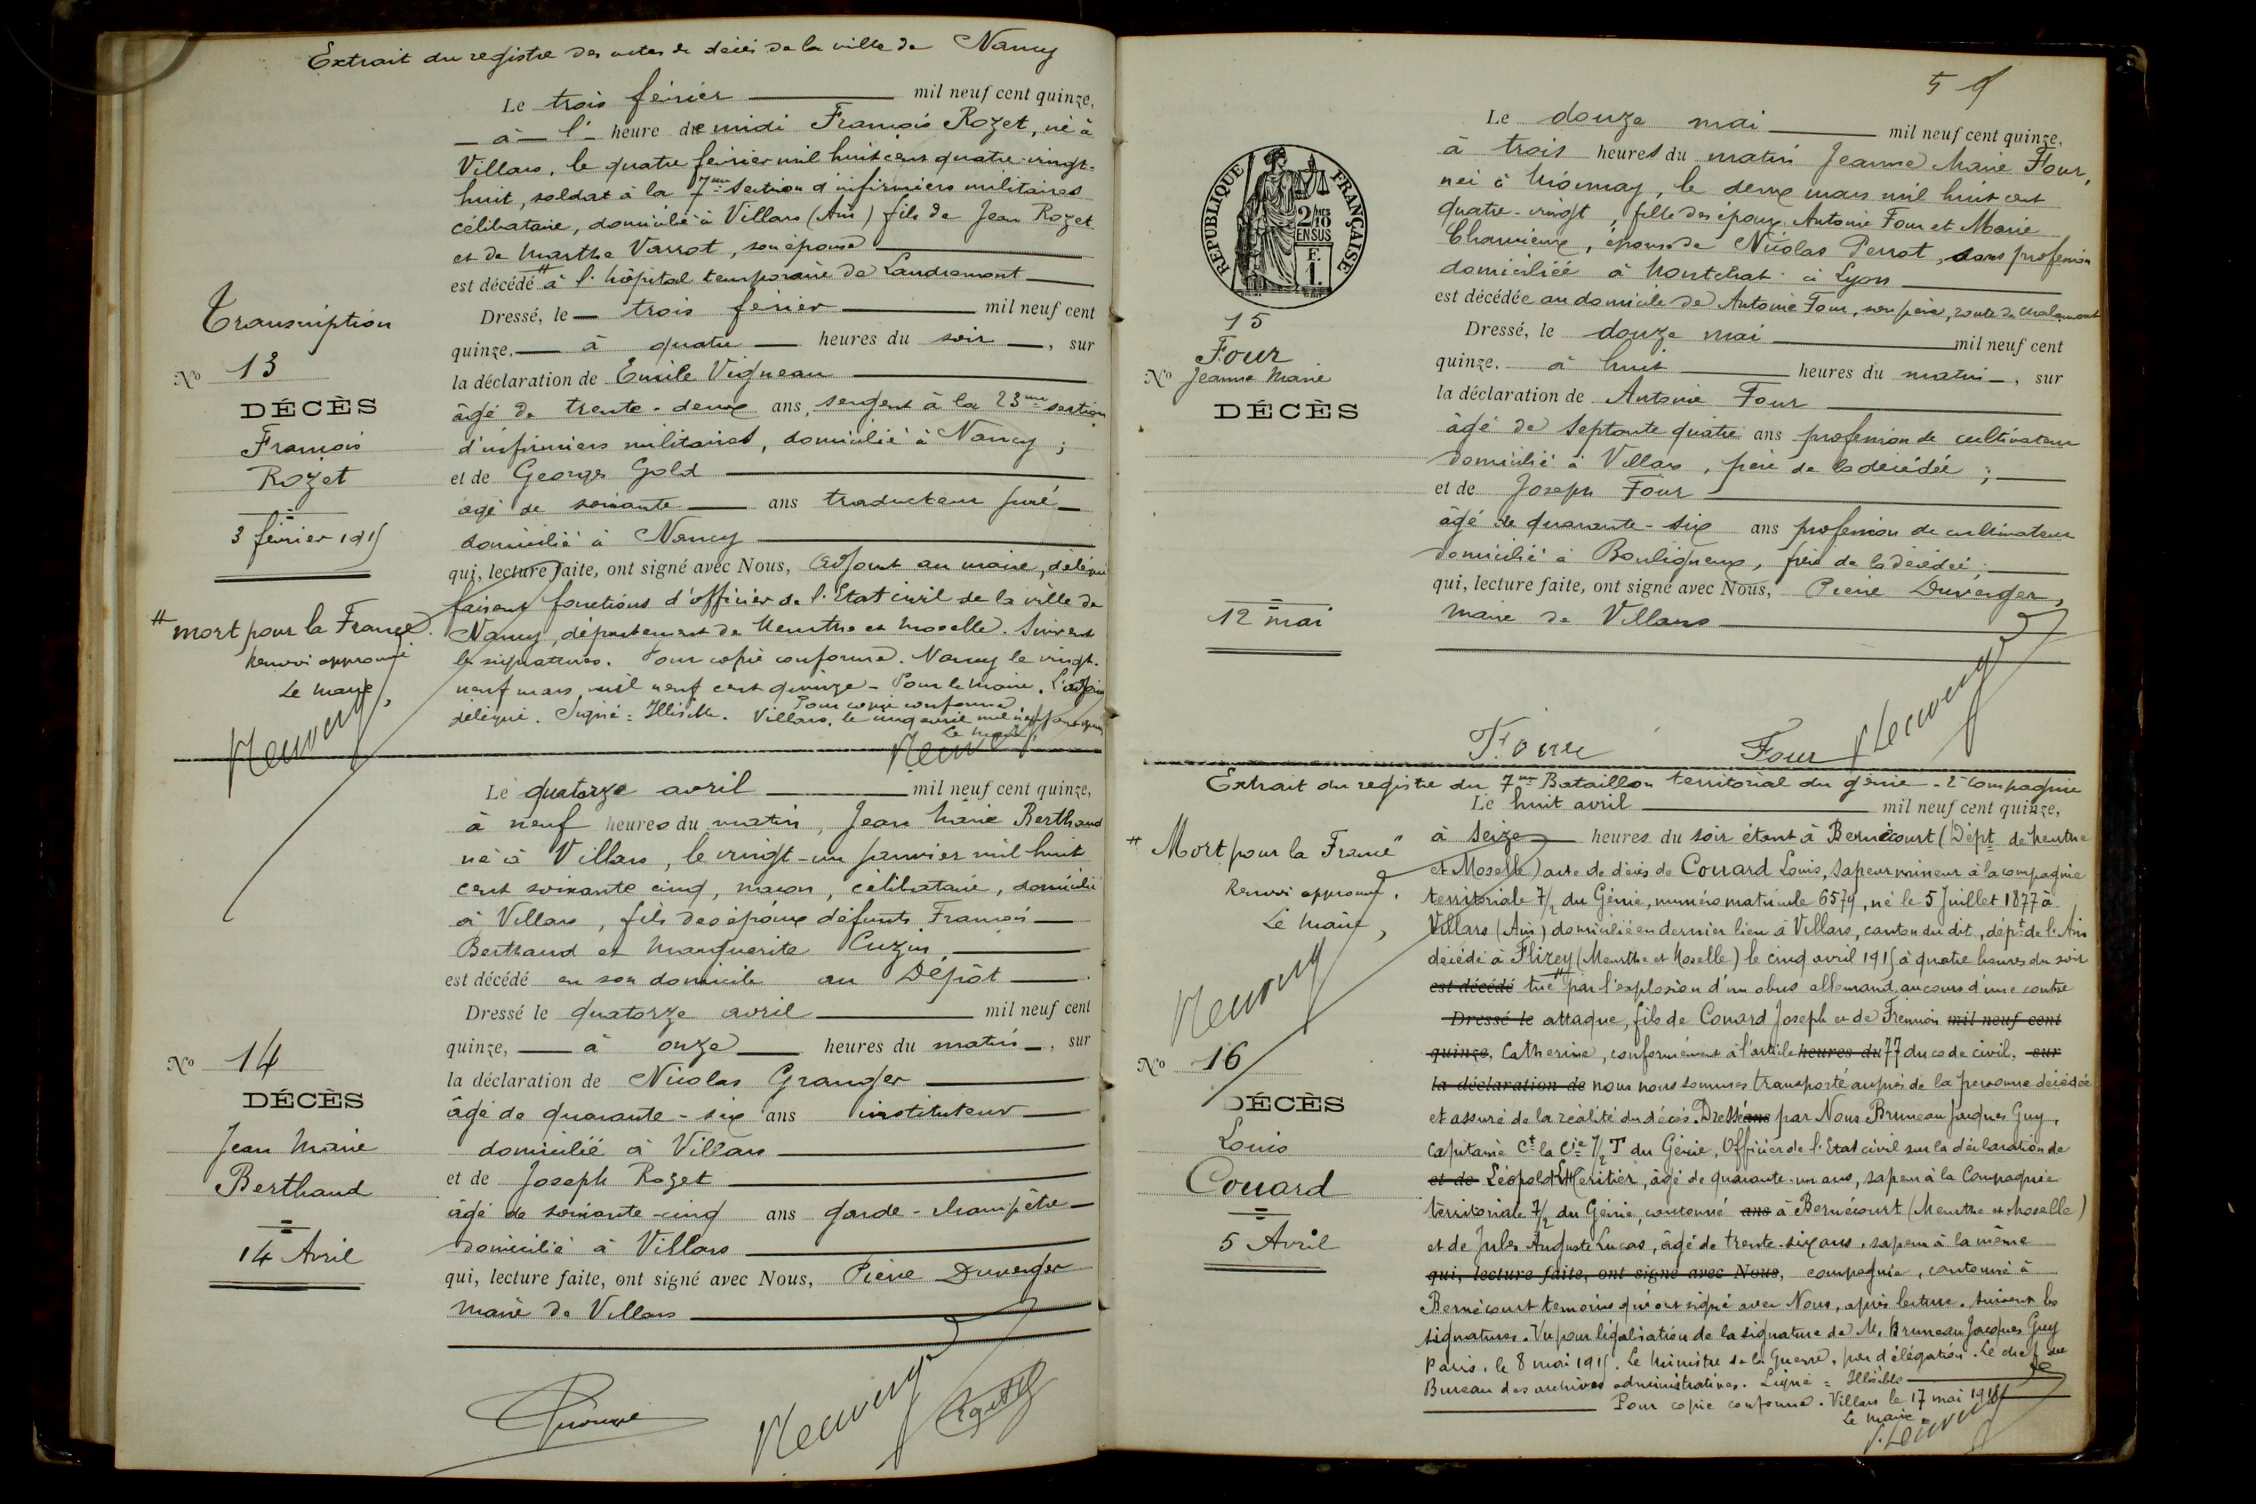 Extrait du registre des actes de décès de la ville de Nancy
Le trois février mil neuf cent quinze,
à l' heure de midi François Rozet, né à
Villars, le quatre février mil huit cent quatre-vingt-
huit, soldat à la 7me section d'infirmiers militaires
célibataire, domicilié à Villars (Ain) fils de Jean Rozet
et de Marthe Varrot, son épouse
est décédé # à l'hôpital temporaire de Landremont
Dressé, le trois février mil neuf cent
quinze, à quatre heures du soir, sur
la déclaration de Emile Vigneau
âgé de trente-deux ans, sergent à la 23me section
d'infirmiers militaires, domicilié à Nancy ;
et de Georges Gold
âgé de soixante ans traducteur juré
domicilié à Nancy
qui, lecture faite, ont signé avec Nous, adjoint au maire, délégué
faisant fonctions d'officier de l'Etat civil de la ville de
Nancy, département de Meurthe et Moselle. Suivent
les signatures. Pour copie conforme. Nancy le vingt-
neuf mars mil neuf cent quinze - Pour le Maire. L'adjoint
délégué. Signé : Illisible. Pour copie conforme
Villars, le cinq avril mil neuf cent quinze
Le Maire,
Transcription
No 13
DÉCÈS
François
Rozet
3 février 1915
# mort pour la France.
Renvoi approuvé
Le Maire,
Le quatorze avril mil neuf cent quinze,
à neuf heures du matin, Jean Marie Berthaud
né à Villars, le vingt-un janvier mil huit
cent soixante cinq, maçon, célibataire, domicilié
à Villars, fils des époux défunts François
Berthaud et Marguerite Cuzin,
est décédé en son domicile au Dépôt
Dressé le quatorze avril mil neuf cent
quinze, à onze heures du matin, sur
la déclaration de Nicolas Granger
âgé de quarante-six ans instituteur
domicilié à Villars
et de Joseph Rozet
âgé de soixante-cinq ans garde-champêtre
domicilié à Villars
qui, lecture faite, ont signé avec Nous, Pierre Duverger
Maire de Villars
No 14
DÉCÈS
Jean Marie
Berthaud
14 Avril
59
RÉPUBLIQUE FRANÇAISE
2/10
EN SUS
F.
1.
Le douze mai mil neuf cent quinze,
à trois heures du matin Jeanne Marie Four,
née à Mionnay, le deux mars mil huit cent
quatre-vingt, fille des époux Antoine Four et Marie
Charvieux, épouse de Nicolas Perrot, sans profession
domiciliée à Montchat à Lyon
est décédée au domicile de Antoine Four, son père, route de Chalamont
Dressé, le douze mai mil neuf cent
quinze, à huit heures du matin, sur
la déclaration de Antoine Four
âgé de septante quatre ans profession de cultivateur
domicilié à Villars, père de la décédée ;
et de Joseph Four
âgé de quarante-six ans profession de cultivateur
domicilié à Bouligneux, frère de la décédée ;
qui, lecture faite, ont signé avec Nous, Pierre Duverger,
Maire de Villars
15
Four
No Jeanne Marie
DÉCÈS
12 mai
Four Four
Extrait du registre du 7me Bataillon territorial du génie - 2e Compagnie
Le huit avril mil neuf cent quinze,
à seize heures du soir étant à Bernécourt (Dépt de Meurthe
et Moselle) acte de décès de Couard Louis, sapeur mineur à la compagnie
territoriale 7/2 du Génie, numéro matricule 6579, né le 5 Juillet 1877 à
Villars (Ain) domicilié en dernier lieu à Villars, canton du dit, dépt de l'Ain
décédé à Flirey (Meurthe et Moselle) le cinq avril 1915 à quatre heures du soir
est décédé tué # par l'explosion d'un obus allemand au cours d'une contre
Dressé le attaque, fils de Couard Joseph et de Fremion mil neuf cent
quinze, Catherine, conformément à l'article heures du 77 du code civil, sur
la déclaration de nous nous sommes transporté auprès de la personne décédée
et assuré de la réalité du décès. Dressé ans par Nous Bruneau Jacques Guy,
Capitaine Ct la Cie 7/2 T du Génie, Officier de l'Etat civil sur la déclaration de
et de Léopold L'Heritier, âgé de quarante-un ans, sapeur à la Compagnie
territoriale 7/2 du Génie, cantonné ans à Bernécourt (Meurthe et Moselle)
et de Jules Auguste Lucas, âgé de trente-six ans, sapeur à la même
qui, lecture faite, ont signé avec Nous, compagnie, cantonné à
Bernécourt temoins qui ont signé avec Nous, après lecture. Suivent les
signatures. Vu pour légalisation de la signature de M. Bruneau Jacques Guy
Paris, le 8 mai 1915. Le Ministre de la Guerre, par délégation. Le chef du
Bureau des archives administratives. Signé : Illisible
Pour copie conforme. Villars le 17 mai 1915
Le Maire,
# "Mort pour la France"
Renvoi approuvé.
Le Maire,
No 16
DÉCÈS
Louis
Couard
5 Avril